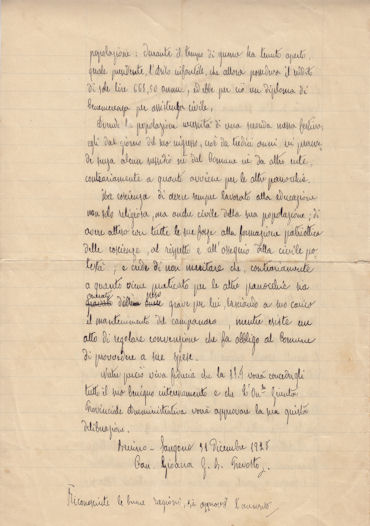 popolazione: durante il tempo di guerra ha tenuto aperto,
quale presidente, l'Asilo infantile, che allora possedeva il reddito
di sole lire 668,50 annue, ed ebbe per ciò un diploma di
benemerenza per assistenza civile.
Avendo la popolazione necessità di una seconda messa festiva,
egli dal giorno del suo ingresso, cioè da tredici anni vi provvede
di senza alcun sussidio nè dal Comune nè da altro ente,
contrariamente a quanto avviene per le altre parrocchie.
Ha coscienza di avere sempre lavorato alla educazione
non solo religiosa, ma anche civile della sua popolazione; di
avere atteso con tutte le sue forze alla formazione patriottica
delle coscienze, al rispetto e all'ossequio della civile po
testà; e crede di non meritare che, contrariamente
a quanto viene praticato per le altre parrocchie sia
grave per lui, lasciando a suo carico
il mantenimento del campanaro, mentre esiste un
atto di regolare convenzione che fa obbligo al Comune
di provvedere a sue spese.
Nutre perciò viva fiducia che la S.V. vorrà concedergli
tutto il suo benigno interessamento e che l'On. Giunta
Provinciale Amministrativa vorrà approvare la sua giusta
Sangone 31 Dicembre 1928
G. B.
Riconosciute le buone ragioni, si approvò l'aumento